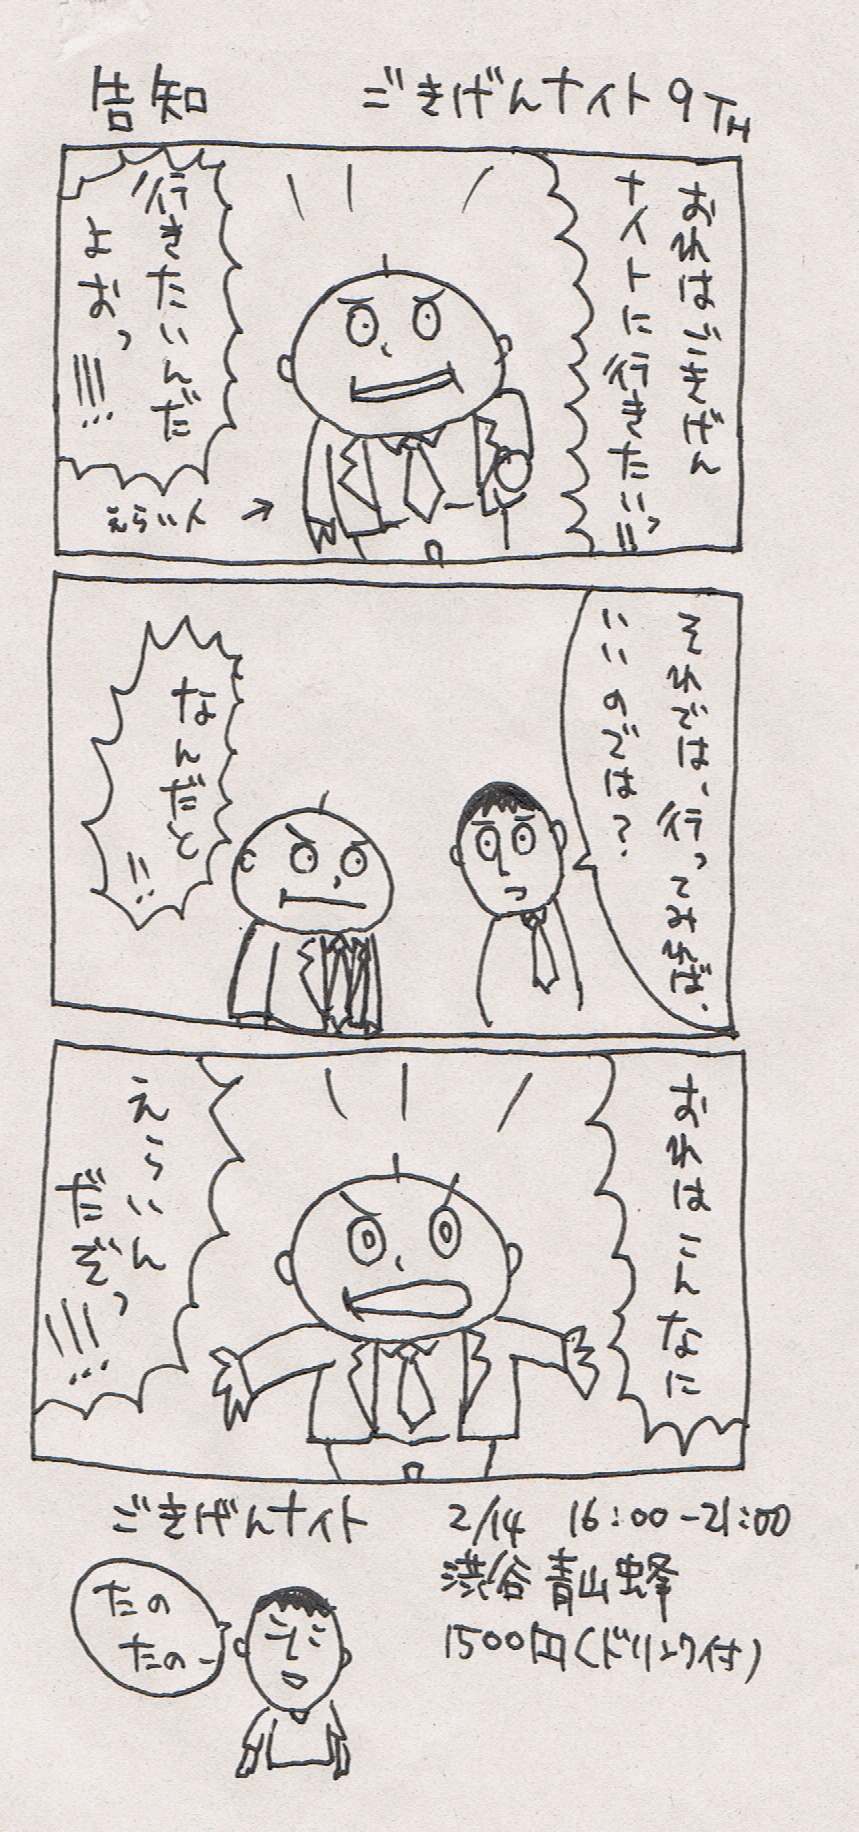 告知
ごきげんナイト9TH
おれはごきげん
ナイトに行きたいっ!!
行きたいんだ
よおっ!!!
えらい人 →
それでは、行ってみれば、
いいのでは?
なんだと!!
おれはこんなに
えらいん
だぞっ!!!
ごきげんナイト
2/14 16:00-21:00
渋谷青山蜂
1500円(ドリンク付)
たの
たのー